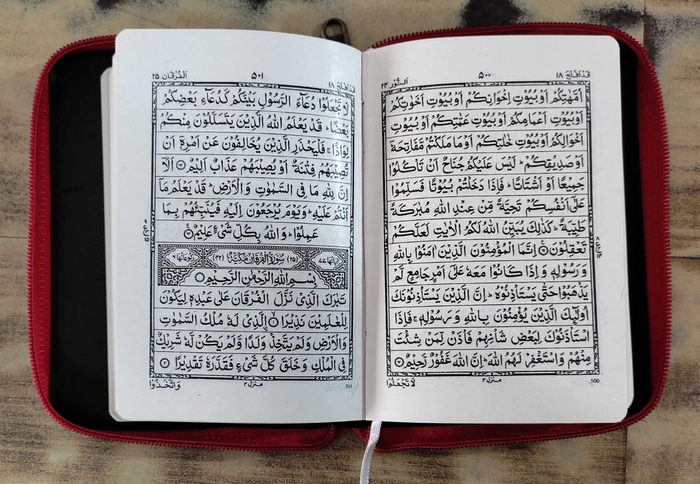 قد افلح ١٨
٥٠٠
النور ٢٤
اُمَّهٰتِكُمْ اَوْ بُيُوْتِ اِخْوَانِكُمْ اَوْ بُيُوْتِ اَخَوٰتِكُمْ
اَوْ بُيُوْتِ اَعْمَامِكُمْ اَوْ بُيُوْتِ عَمّٰتِكُمْ اَوْ بُيُوْتِ
اَخْوَالِكُمْ اَوْ بُيُوْتِ خٰلٰتِكُمْ اَوْ مَا مَلَكْتُمْ مَّفَاتِحَهٗۤ
اَوْ صَدِيْقِكُمْ ؕ لَيْسَ عَلَيْكُمْ جُنَاحٌ اَنْ تَاْكُلُوْا
جَمِيْعًا اَوْ اَشْتَاتًا ؕ فَاِذَا دَخَلْتُمْ بُيُوْتًا فَسَلِّمُوْا
عَلٰۤى اَنْفُسِكُمْ تَحِيَّةً مِّنْ عِنْدِ اللّٰهِ مُبٰرَكَةً
طَيِّبَةً ؕ كَذٰلِكَ يُبَيِّنُ اللّٰهُ لَكُمُ الْاٰيٰتِ لَعَلَّكُمْ
تَعْقِلُوْنَ اِنَّمَا الْمُؤْمِنُوْنَ الَّذِيْنَ اٰمَنُوْا بِاللّٰهِ
وَ رَسُوْلِهٖ وَ اِذَا كَانُوْا مَعَهٗ عَلٰۤى اَمْرٍ جَامِعٍ لَّمْ
يَذْهَبُوْا حَتّٰى يَسْتَاْذِنُوْهُ ؕ اِنَّ الَّذِيْنَ يَسْتَاْذِنُوْنَكَ
اُولٰٓئِكَ الَّذِيْنَ يُؤْمِنُوْنَ بِاللّٰهِ وَ رَسُوْلِهٖ ۚ فَاِذَا
اسْتَاْذَنُوْكَ لِبَعْضِ شَاْنِهِمْ فَاْذَنْ لِّمَنْ شِئْتَ
مِنْهُمْ وَ اسْتَغْفِرْ لَهُمُ اللّٰهَ ؕ اِنَّ اللّٰهَ غَفُوْرٌ رَّحِيْمٌ
منزل ٤
لَا تَجْعَلُوْا
500
قد افلح ١٨
٥٠١
الفرقان ٢٥
لَا تَجْعَلُوْا دُعَآءَ الرَّسُوْلِ بَيْنَكُمْ كَدُعَآءِ بَعْضِكُمْ
بَعْضًا ؕ قَدْ يَعْلَمُ اللّٰهُ الَّذِيْنَ يَتَسَلَّلُوْنَ مِنْكُمْ
لِوَاذًا ۚ فَلْيَحْذَرِ الَّذِيْنَ يُخَالِفُوْنَ عَنْ اَمْرِهٖۤ اَنْ
تُصِيْبَهُمْ فِتْنَةٌ اَوْ يُصِيْبَهُمْ عَذَابٌ اَلِيْمٌ اَلَاۤ
اِنَّ لِلّٰهِ مَا فِى السَّمٰوٰتِ وَ الْاَرْضِ ؕ قَدْ يَعْلَمُ مَاۤ
اَنْتُمْ عَلَيْهِ ؕ وَ يَوْمَ يُرْجَعُوْنَ اِلَيْهِ فَيُنَبِّئُهُمْ بِمَا
عَمِلُوْا ؕ وَ اللّٰهُ بِكُلِّ شَىْءٍ عَلِيْمٌ
اٰيٰتُهَا ٧٧ (٢٥) سُوْرَةُ الْفُرْقَانِ مَكِّيَّةٌ (٤٢) رُكُوْعَاتُهَا ٦
بِسْمِ اللّٰهِ الرَّحْمٰنِ الرَّحِيْمِ
تَبٰرَكَ الَّذِىْ نَزَّلَ الْفُرْقَانَ عَلٰى عَبْدِهٖ لِيَكُوْنَ
لِلْعٰلَمِيْنَ نَذِيْرًا الَّذِىْ لَهٗ مُلْكُ السَّمٰوٰتِ
وَ الْاَرْضِ وَ لَمْ يَتَّخِذْ وَلَدًا وَّ لَمْ يَكُنْ لَّهٗ شَرِيْكٌ
فِى الْمُلْكِ وَ خَلَقَ كُلَّ شَىْءٍ فَقَدَّرَهٗ تَقْدِيْرًا
منزل ٤
وَ اتَّخَذُوْا
501